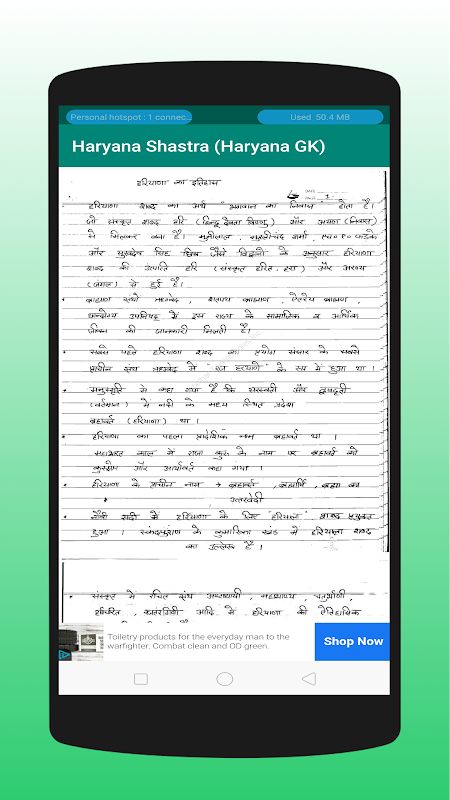 Personal hotspot : 1 connec...
Used 50.4 MB
Haryana Shastra (Haryana GK)
हरियाणा का इतिहास
DATE
PAGE 1
हरियाणा शब्द का अर्थ "भगवान का निवास" होता है।
जो संस्कृत शब्द हरि (हिन्दू देवता विष्णु) और अयण (निवास)
से मिलकर बना है। मुनीलाल, मुरलीचंद शर्मा, एच०ए० फड़के
और सुखदेव सिंह छिब जैसे विद्वानों के अनुसार हरियाणा
शब्द की उत्पत्ति हरि (संस्कृत हरित, हरा) और अरण्य
(जंगल) से हुई है।
ब्राह्मण ग्रंथों ऋग्वेद, शतपथ ब्राह्मण, ऐतरेय ब्राह्मण,
छान्दोग्य उपनिषद् में इस राज्य के सामाजिक व आर्थिक
जीवन की जानकारी मिलती है।
• सबसे पहले हरियाणा शब्द का प्रयोग संसार के सबसे
प्राचीन ग्रंथ ऋग्वेद में "रज हरयाणे" के रूप में हुआ था।
• मनुस्मृति में कहा गया है कि सरस्वती और दृषद्वती
(वर्तमान) में नदी के मध्य स्थित प्रदेश
ब्रह्मवर्त (हरियाणा) था।
• हरियाणा का पहला प्रादेशिक नाम ब्रह्मवर्त था।
महाभारत काल में राजा कुरु के नाम पर ब्रह्मवर्त को
कुरुक्षेत्र और आर्यावर्त कहा गया।
• हरियाणा के प्राचीन नाम → ब्रह्मवर्त, ब्रह्मर्षि, ब्रह्मा का
उत्तरवेदी
• नौवीं शदी में हरियाणा के लिए "हरियाला" शब्द प्रयुक्त
हुआ। स्कंदपुराण के कुमारिका खंड में हरियाला शब्द
का उल्लेख है।
• संस्कृत में रचित ग्रंथ अष्टाध्यायी, महाभाष्य,
हर्षचरित, राजतरंगिणी आदि में हरियाणा की ऐतिहासिक
Toiletry products for the everyday man to the
warfighter. Combat clean and OD green.
Shop Now